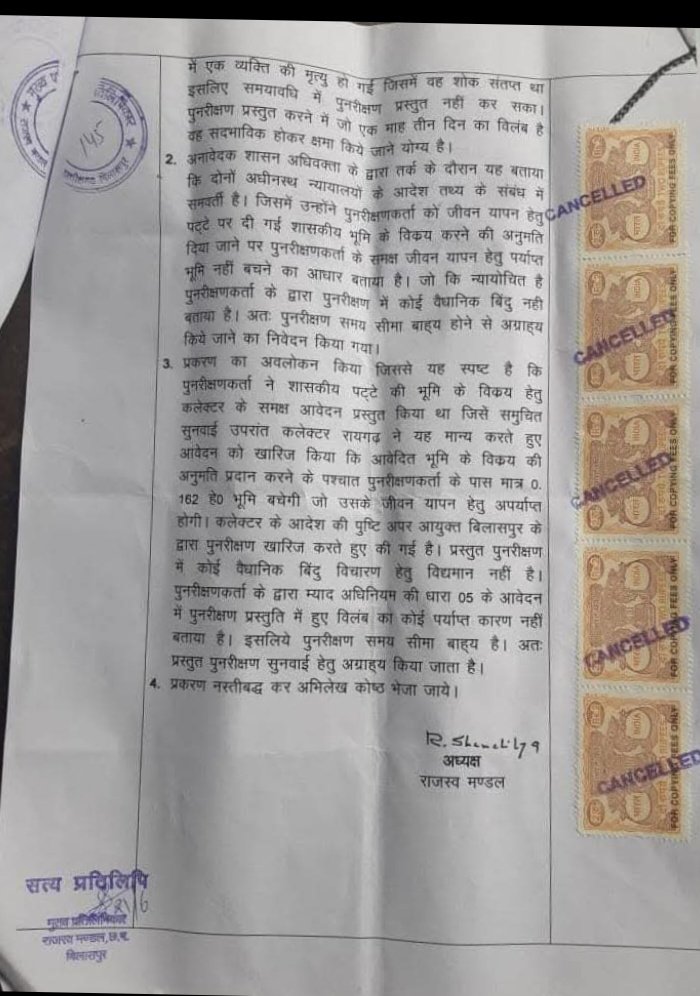 में एक व्यक्ति की मृत्यु हो गई जिसमें वह शोक संतप्त था
इसलिए समयावधि में पुनरीक्षण प्रस्तुत नहीं कर सका।
पुनरीक्षण प्रस्तुत करने में जो एक माह तीन दिन का विलंब है
वह सदभाविक होकर क्षमा किये जाने योग्य है।
2. अनावेदक शासन अधिवक्ता के द्वारा तर्क के दौरान यह बताया
कि दोनों अधीनस्थ न्यायालयों के आदेश तथ्य के संबंध में
समवर्ती है। जिसमें उन्होंने पुनरीक्षणकर्ता को जीवन यापन हेतु
पट्टे पर दी गई शासकीय भूमि के विकय करने की अनुमति
दिया जाने पर पुनरीक्षणकर्ता के समक्ष जीवन यापन हेतु पर्याप्त
भूमि नहीं बचने का आधार बताया है। जो कि न्यायोचित है
पुनरीक्षणकर्ता के द्वारा पुनरीक्षण में कोई वैधानिक बिंदु नही
बताया है। अतः पुनरीक्षण समय सीमा बाह्य होने से अग्राह्य
किये जाने का निवेदन किया गया।
3. प्रकरण का अवलोकन किया जिससे यह स्पष्ट है कि
पुनरीक्षणकर्ता ने शासकीय पट्टे की भूमि के विकय हेतु
कलेक्टर के समक्ष आवेदन प्रस्तुत किया था जिसे समुचित
सुनवाई उपरांत कलेक्टर रायगढ़ ने यह मान्य करते हुए
आवेदन को खारिज किया कि आवेदित भूमि के विकय की
अनुमति प्रदान करने के पश्चात पुनरीक्षणकर्ता के पास मात्र 0.
162 हे0 भूमि बचेगी जो उसके जीवन यापन हेतु अपर्याप्त
होगी। कलेक्टर के आदेश की पुष्टि अपर आयुक्त बिलासपुर के
द्वारा पुनरीक्षण खारिज करते हुए की गई है। प्रस्तुत पुनरीक्षण
में कोई वैधानिक बिंदु विचारण हेतु विद्यमान नहीं है।
पुनरीक्षणकर्ता के द्वारा म्याद अधिनियम की धारा 05 के आवेदन
में पुनरीक्षण प्रस्तुति में हुए विलंब का कोई पर्याप्त कारण नहीं
बताया है। इसलिये पुनरीक्षण समय सीमा बाह्य है। अतः
प्रस्तुत पुनरीक्षण सुनवाई हेतु अग्राह्य किया जाता है।
4. प्रकरण नस्तीबद्ध कर अभिलेख कोष्ठ भेजा जाये।
अध्यक्ष
राजस्व मण्डल
सत्य प्रतिलिपि
राजस्व मण्डल, छ.ग.
बिलासपुर
145
छत्तीसगढ़ बिलासपुर
CANCELLED
भारत INDIA
FOR COPYING FEES ONLY
CANCELLED
भारत INDIA
FOR COPYING FEES ONLY
CANCELLED
भारत INDIA
FOR COPYING FEES ONLY
CANCELLED
भारत INDIA
FOR COPYING FEES ONLY
CANCELLED
भारत INDIA
FOR COPYING FEES ONLY